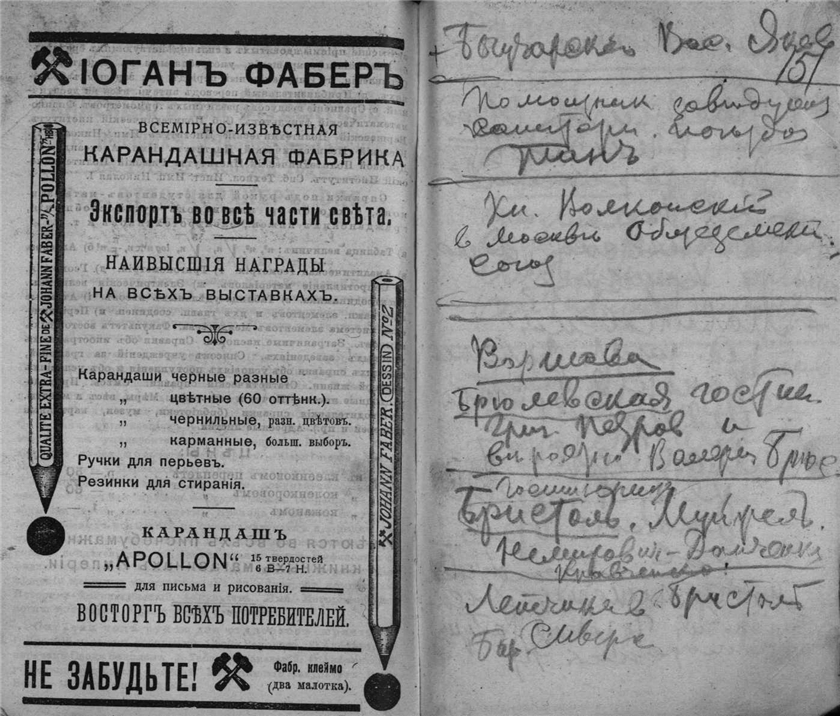 ІОГАНЪ ФАБЕРЪ
ВСЕМІРНО-ИЗВѢСТНАЯ
КАРАНДАШНАЯ ФАБРИКА
Экспортъ во всѣ части свѣта.
НАИВЫСШІЯ НАГРАДЫ
НА ВСѢХЪ ВЫСТАВКАХЪ.
Карандаши черные разные
„ цвѣтные (60 оттѣнк.).
„ чернильные, разн. цвѣтовъ.
„ карманные, больш. выборъ.
Ручки для перьевъ.
Резинки для стиранія.
КАРАНДАШЪ
„APOLLON“ 15 твердостей
6 B—7 H.
для письма и рисованія.
ВОСТОРГЪ ВСѢХЪ ПОТРЕБИТЕЛЕЙ.
НЕ ЗАБУДЬТЕ!
Фабр. клеймо
(два молотка).
QUALITÉ EXTRA-FINE DE JOHANN FABER "APOLLON"
JOHANN FABER. (DESSIN) No2
Вас.
151
Помощник
санитарн. поезда
Кн. Волконский
в Москвѣ
союз
Варшава
Брюлевская гостин.
Григ. Петров и
Валерій Брюс
Бристоль.
Немирович-Данченко
Кравченко
в Бристолѣ
Бар. Сиверс